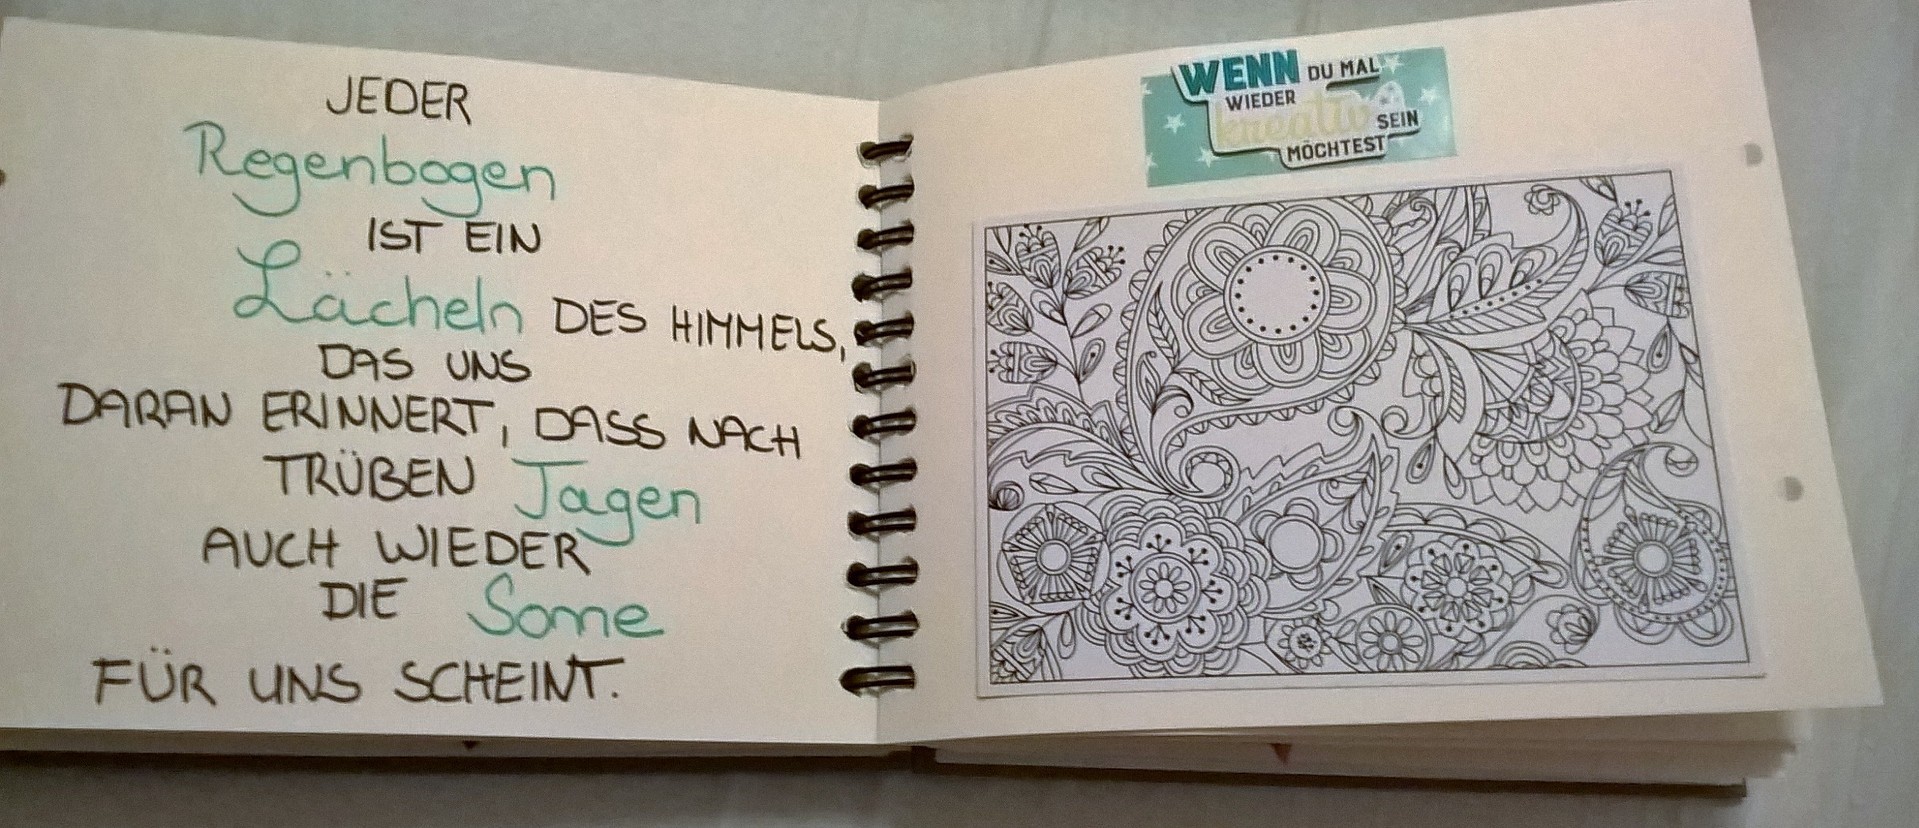 JEDER
Regenbogen
IST EIN
Lächeln DES HIMMELS,
DAS UNS
DARAN ERINNERT, DASS NACH
TRÜBEN Tagen
AUCH WIEDER
DIE Sonne
FÜR UNS SCHEINT.
WENN DU MAL
WIEDER
kreativ SEIN
MÖCHTEST